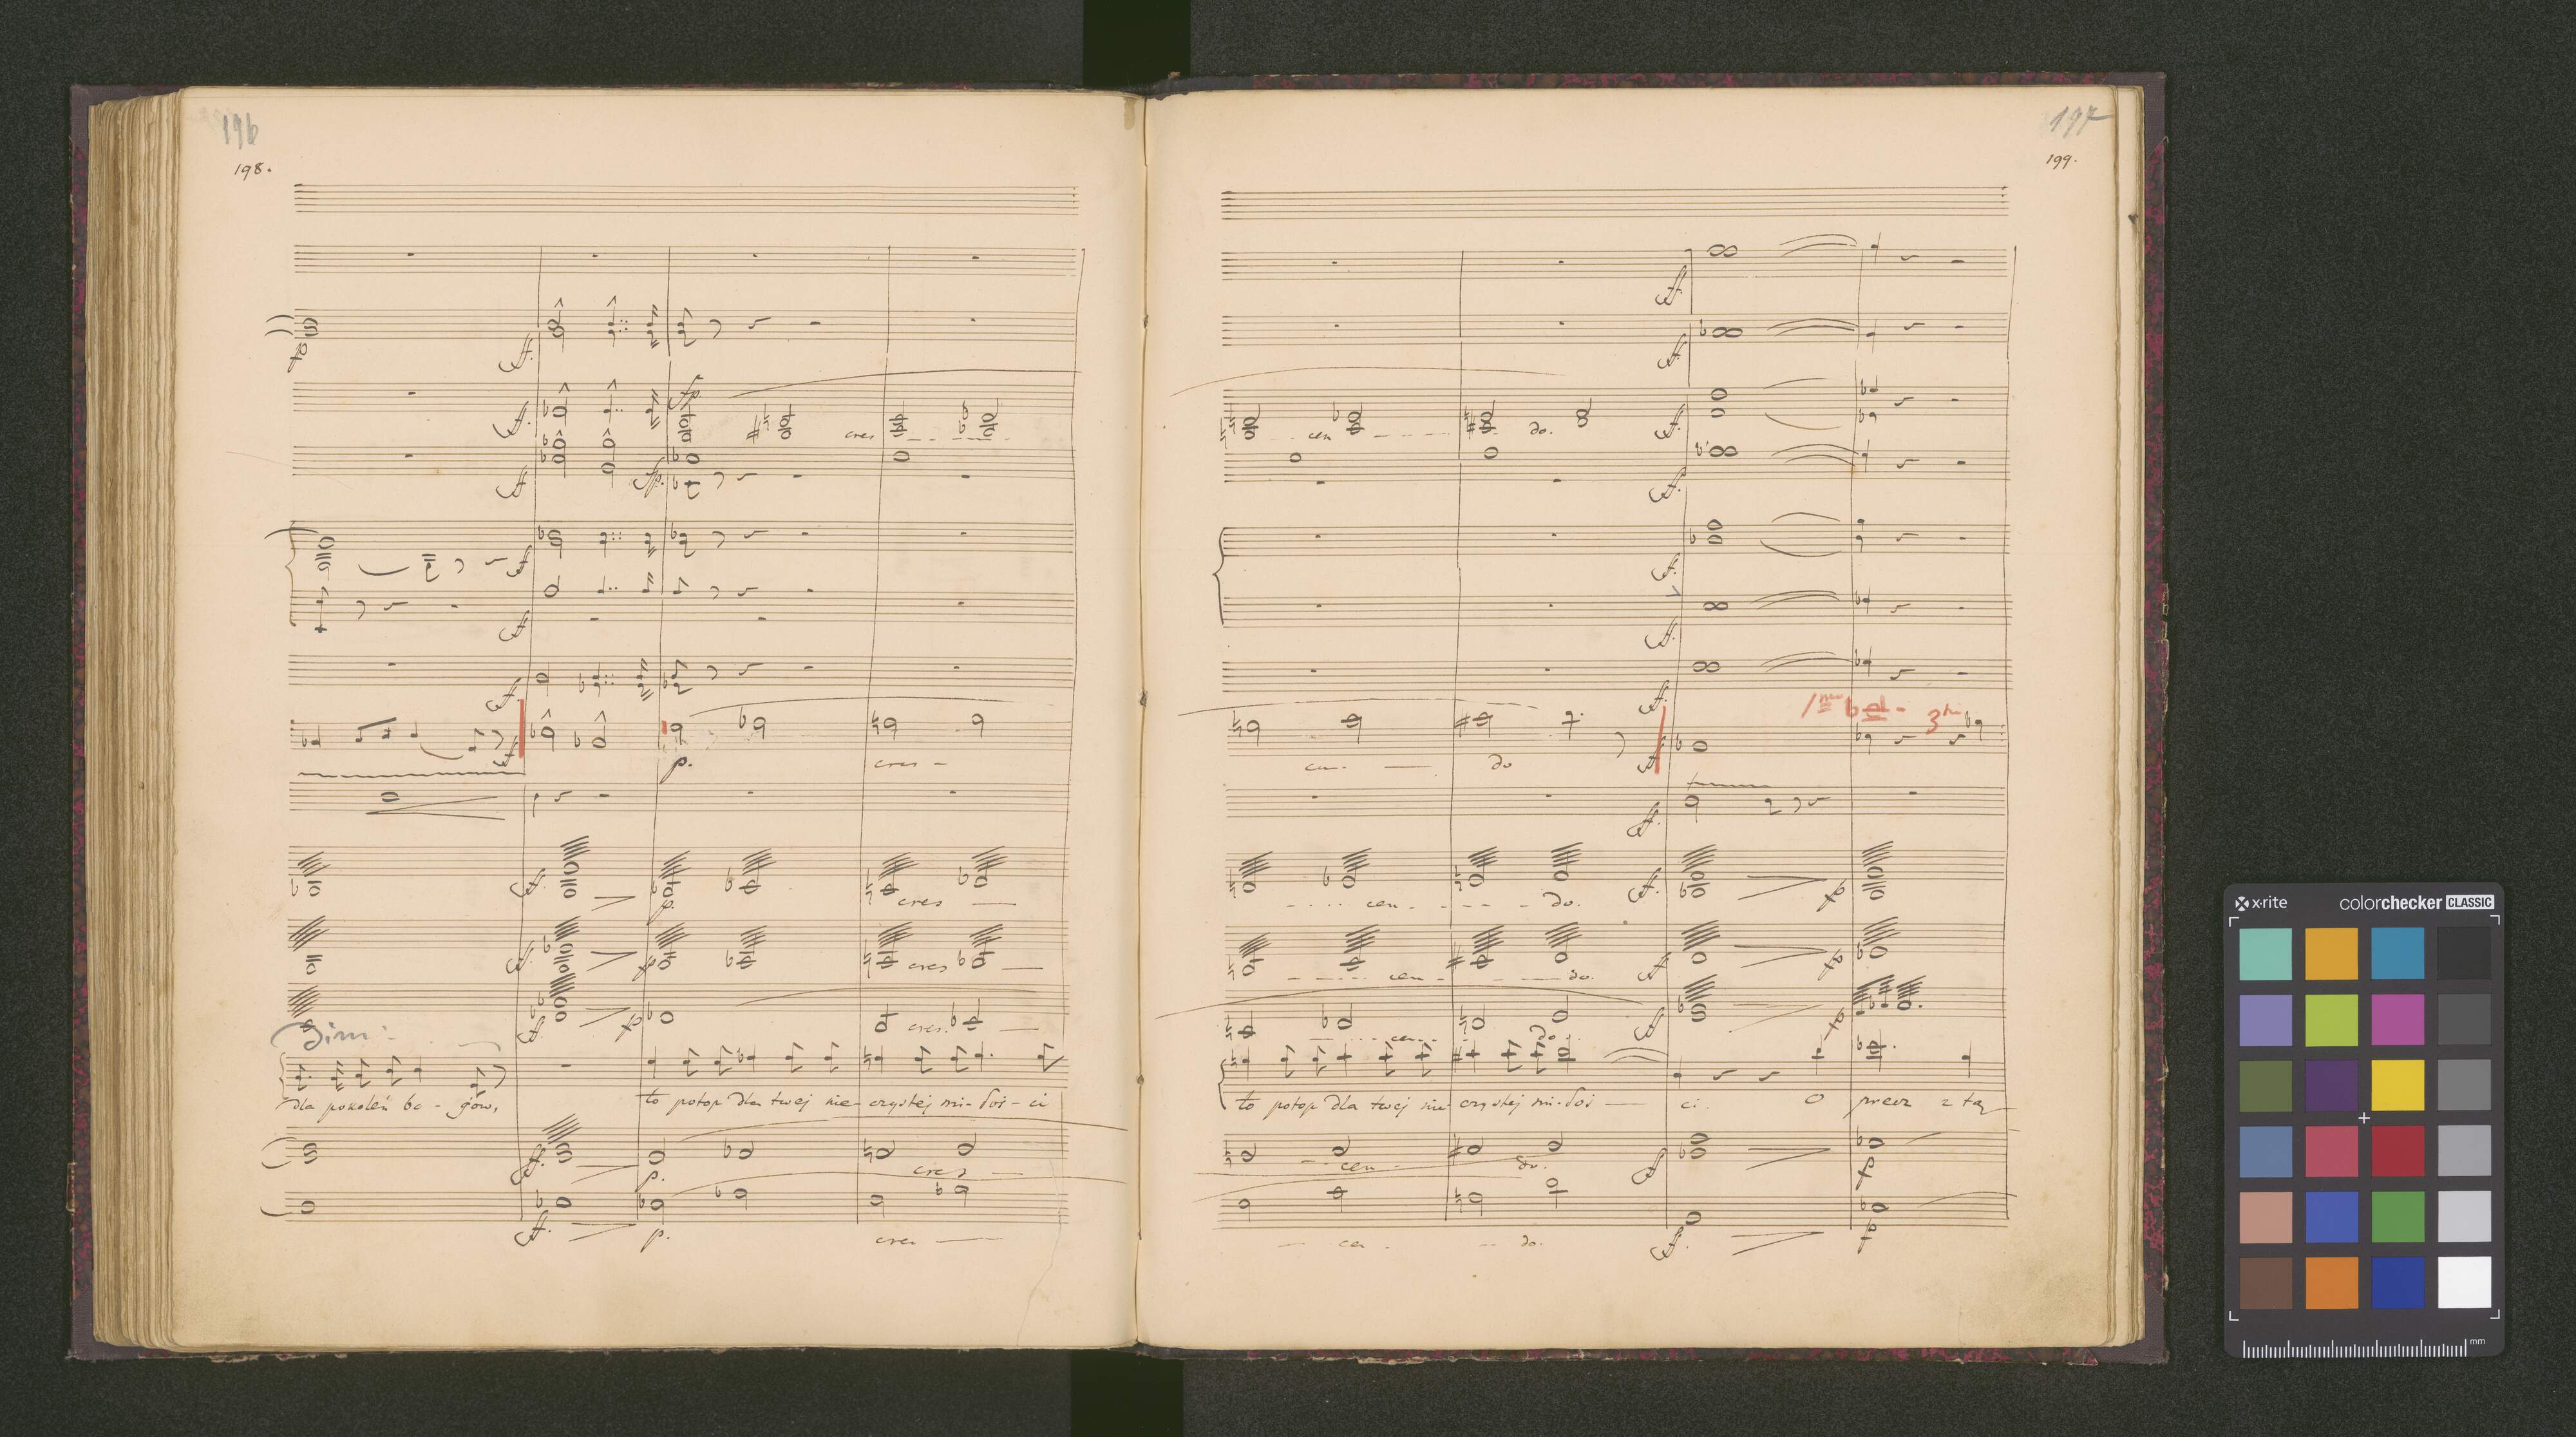 196
198.
ff.
ff.
fp
cres
ff.
fp.
ff
ff.
ff.
ff
p.
cres -
ff.
p.
cres
ff.
p
cres
Dim:
ff.
p
cres.
dla pokoleń bo - gów, to potop dla twej nie - czystej mi - łoś - ci
ff.
p.
cres
ff.
p.
cres
197
199.
ff.
ff.
cen do. ff.
ff.
ff.
ff.
ff.
3
cen - do ff
ff.
cen - do. ff. p
cen - do. ff p
cen - do. ff p
to potop dla twej nie - czystej mi - łoś - ci. O precz z tą
cen - do. ff p
cen - do. ff. p
x-rite colorchecker CLASSIC
mm